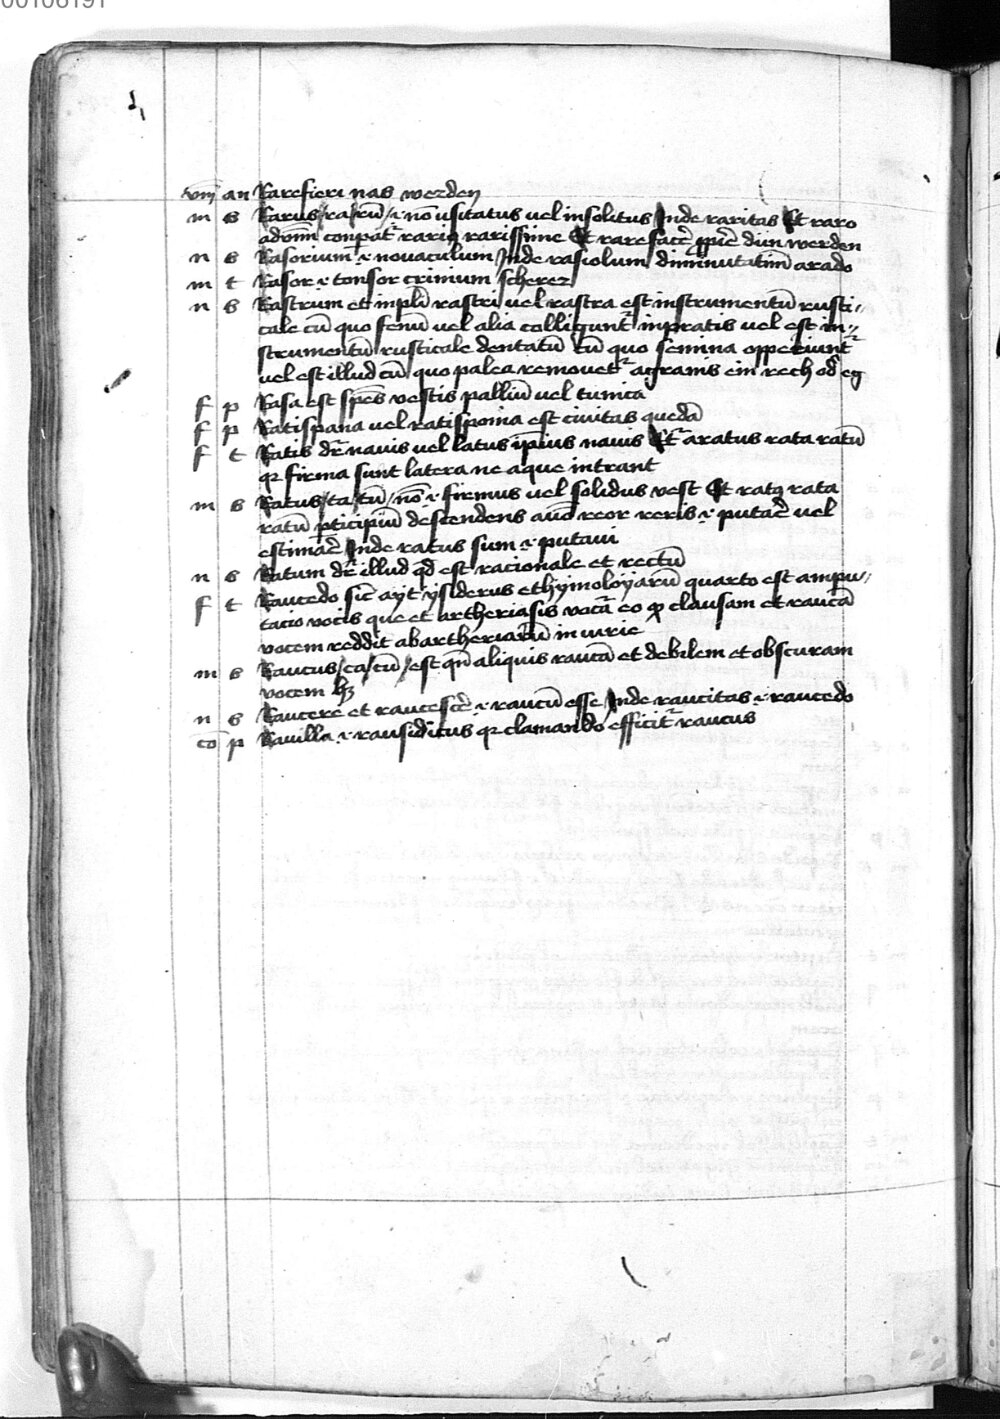 00106191
vın an Rarefieri nas werden
m s Rarus / ra / rū / .i. nō usitatus uel insolitus Inde raritas Et raro
adōm conpāt rariꝯ rarissime Et rarefacē̄ dün werden
n s Rasorium .i. novaculum Inde rasiolum diminutatim a rado
m t Rasor .i. tonsor crinium scherer
n s Rastrum et inplī rastri uel rastra est instrumentū rusti//
cale cū quo fenū uel alia colligunt͛ inpratis uel est in//
strumentū rusticale dentatū cū quo semina opperiunt͛
uel est illud cū quo palea remouet͛ agranis ein rech od eg
f p Rasa est spēs vestis palliū uel tunica
f p Ratispana uel ratispona est ciuitas quedā
f t Ratis dr̄ nauis uel latus ip̄ius nauis Et͛ aratus rata ratū
qꝛ firma sunt latera ne aque intrant
m s Ratus / ta / tū / nō .i. firmus uel solidus vest Et ratꝯ rata
ratū pticipiū descendens auō reor reris .i. putāe uel
estimāe Inde ratus sum .i. putaui
n s Ratum dr̄ illud qd̄ est racionale et rectū
f t Raucedo sic̄ ayt ysiderus ethymoloyarū quarto est ampu//
tacio vocis que et artheriasis vocāt eo ꝙ clausam et raucā
vocem reddit abartheriarū iniurie
m s Raucus / ca / cū / est qn̄ aliquis raucā et debilem et obscuram
vocem hꝫ
n s Raucere et raucescē .i. raucū esse Inde raucitas .i. raucedo
cō p Rauilla .i. rausiditus qꝛ clamando efficit͛ raucus